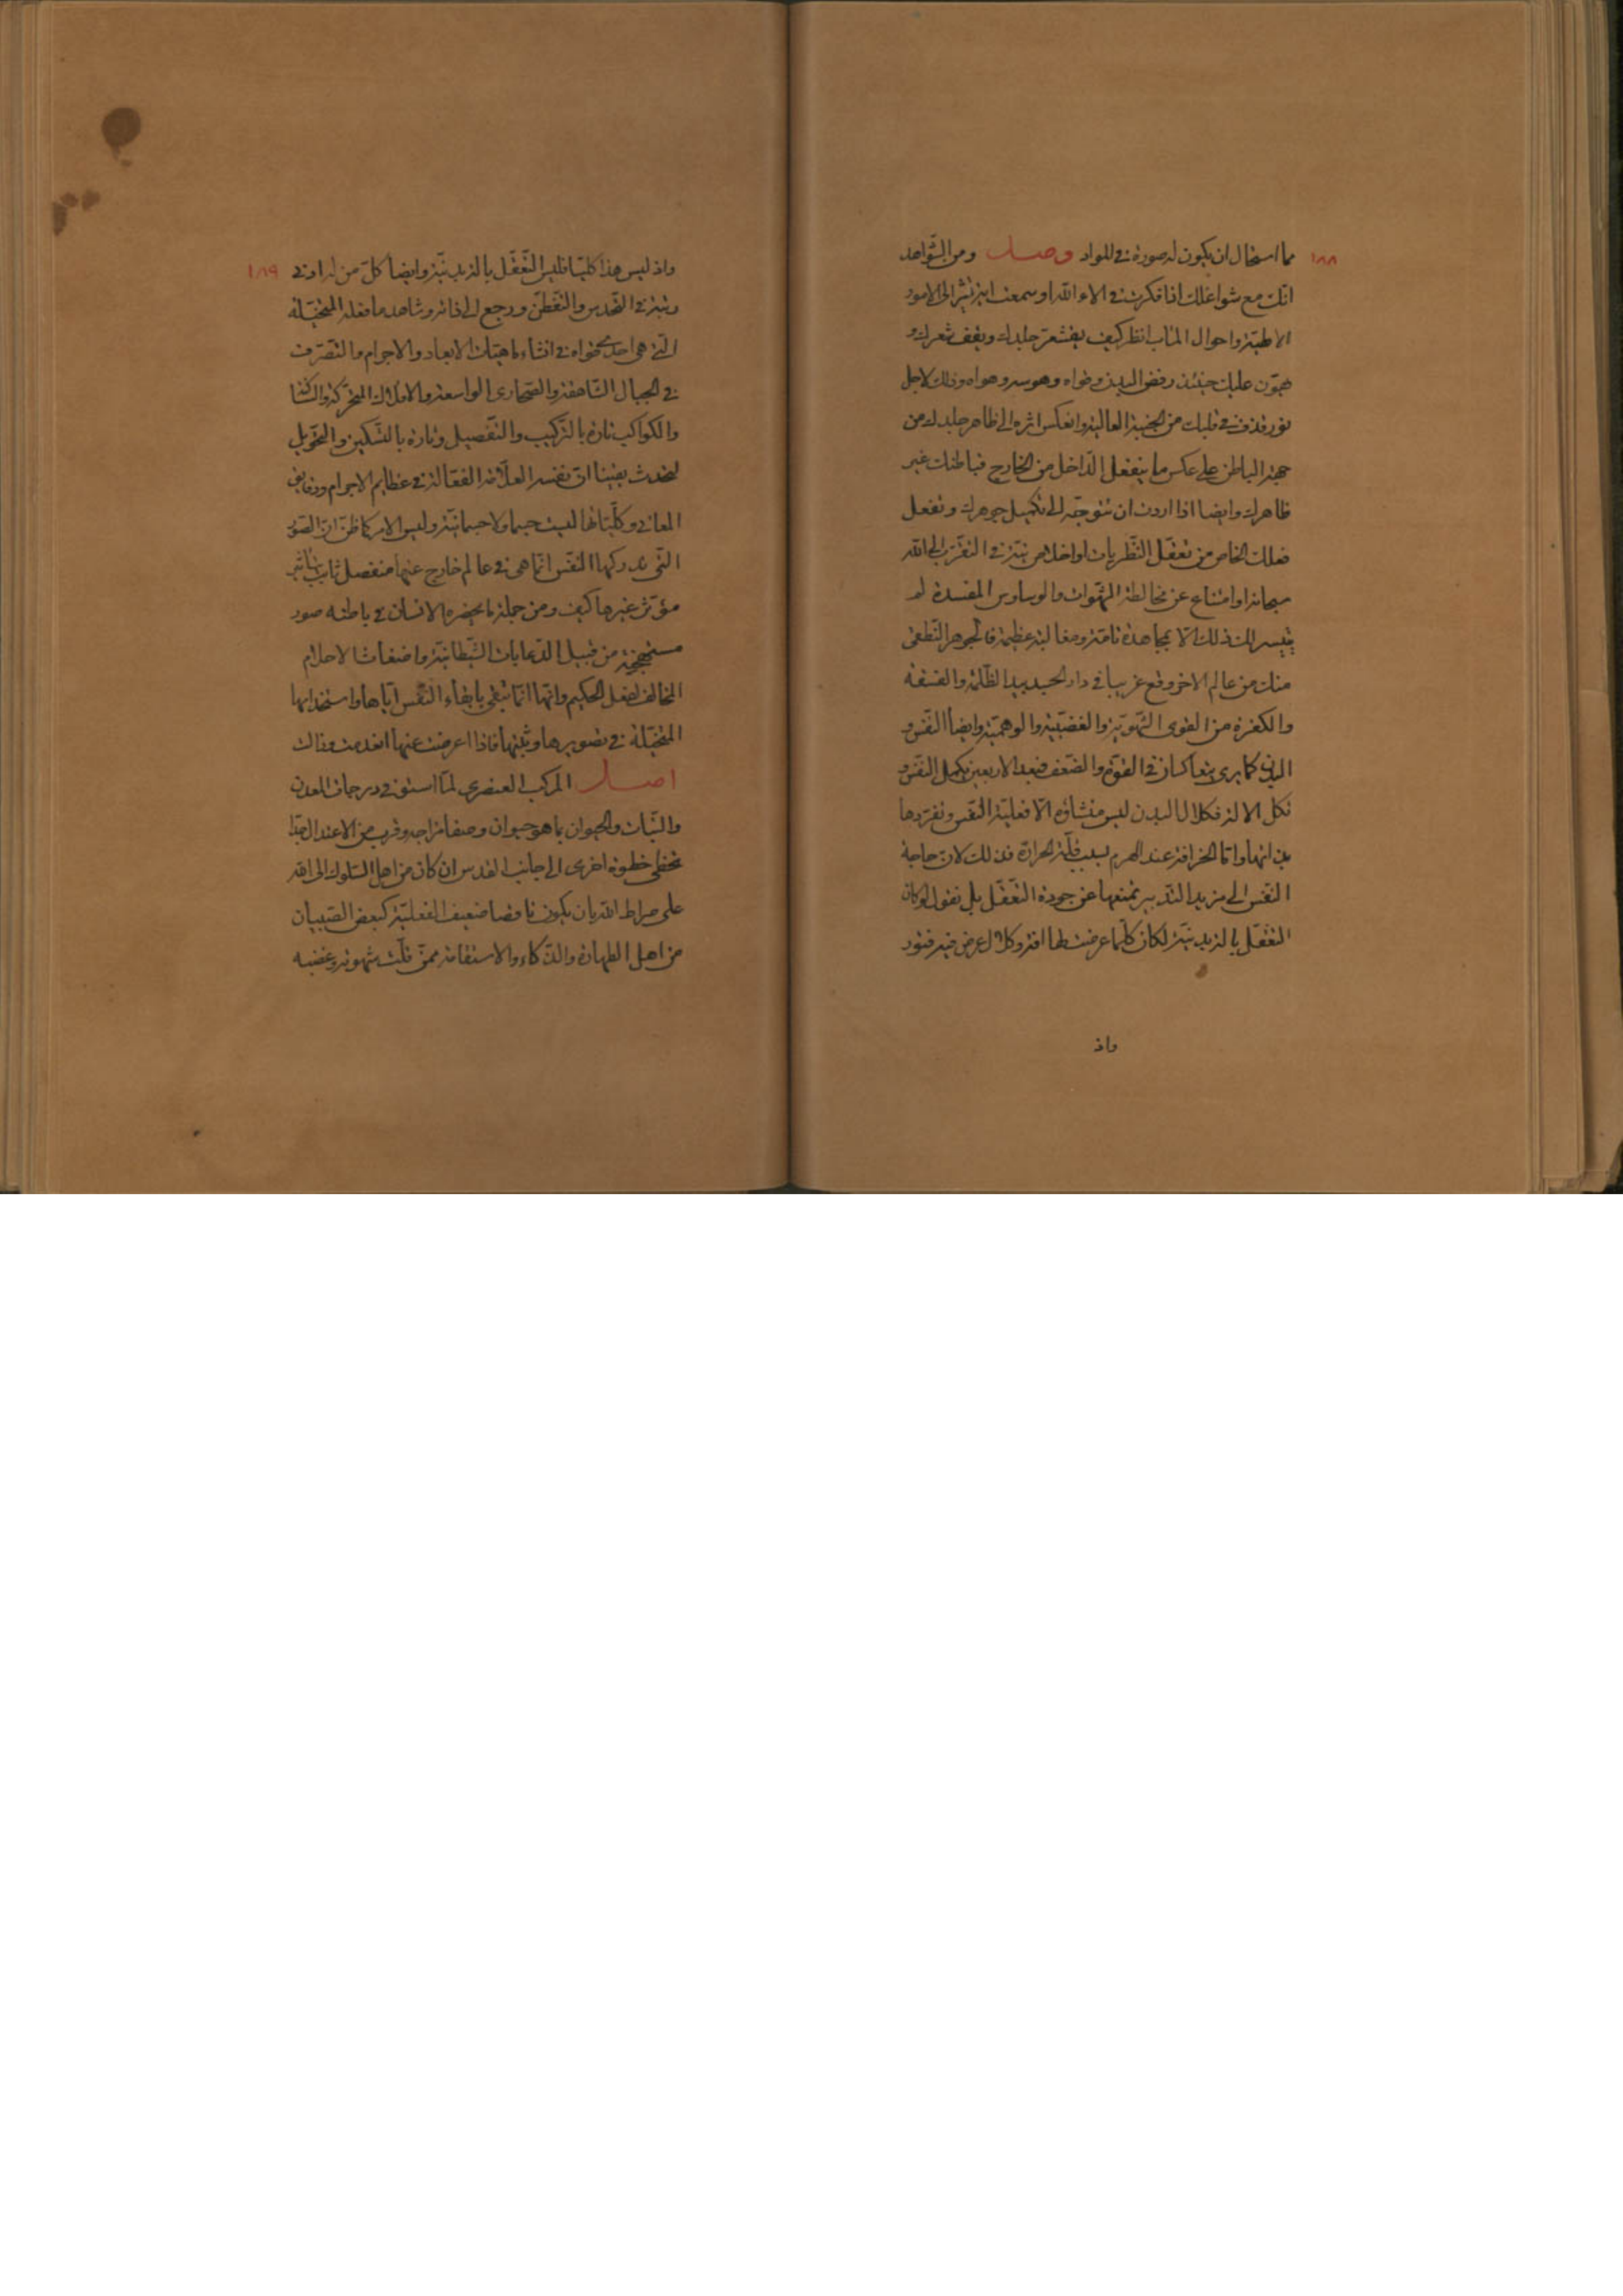 ١٨٨
مما استحال ان يكون له صورة في المواد وصل ومن الشواهد
انك مع شواغلك اذا فكرت في الاء الله او سمعت اية تشير الى الامور
الالهية واحوال المآب انظر كيف يقشعر جلدك ويقف شعرك و
يهون عليك حينئذ رفض البدن وقواه وهوسه وهواه وذلك لاجل
نور قذف في قلبك من الجنبة العالية وانعكس اثره الى ظاهر جلدك من
جهة الباطن على عكس ما ينفعل الداخل من الخارج فباطنك غير
ظاهرك وايضا اذا اردت ان تتوجه الى تكميل جوهرك وتفعل
فعلك الخاص من تعقل النظريات او اخلاص نية في التقرب الى الله
سبحانه او امتناع عن مخالطة الشهوات والوساوس المفسدة لم
يتيسر لك ذلك الا بمجاهدة تامة ومغالبة عظيمة فالجوهر النطقي
منك من عالم الاخر وقع غريبا في دار الجسد بيد الظلمة والفسقة
والكفرة من القوى الشهوية والغضبية والوهمية وايضا النفس و
البدن كما يرى يتعاكسان في القوة والضعف فبعد الاربعين يكمل النفس و
تكل الالة فكلال البدن ليس منشاؤه الا فعلية النفس وتفردها
بذاتها واما الخرافة عند الهرم بسبب قلة الحرارة فذلك لان حاجة
النفس الى مزيد التدبير تمنعها عن جودة التعقل بل نقول لو كان
التعقل بالة بدنية لكان كلما عرضت لها افة وكلال عرض فيه فتور
واذ
١٨٩
واذ ليس هذا كليا فليس التعقل بالة بدنية وايضا كل من له ادنى
رتبة في التحدس والتفطن ورجع الى ذاته وشاهد ما فعله المتخيلة
التي هي احدى قواه في انشاء ماهيات الابعاد والاجرام والتصرف
في الجبال الشاهقة والصحاري الواسعة والافلاك المتحركة والساكنة
والكواكب تارة بالتركيب والتفصيل وتارة بالتسكين والتحويل
يتحدث يقينا ان نفسه العلامة الفعالة في عظايم الاجرام ودقايق
المعاني وكلياتها ليست جسما ولا جسمانية وليس الامر كما ظن ان الصور
التي تدركها النفس انما هي في عالم خارج عنها منفصل ثابت بتاثير
مؤثر غيرها كيف ومن جملة ما يحضره الانسان في باطنه صور
مستهجنة من قبيل الدعابات الشيطانية واضغاث الاحلام
المخالف لفعل الحكيم وانها انما تبقى بابقاء النفس اياها واستخدامها
المتخيلة في تصويرها وتثبتها فاذا اعرضت عنها انعدمت وزالت
اصل المركب العنصري لما استوفى درجات المعدن
والنبات والحيوان بما هو حيوان وصفا مزاجه وقرب من الاعتدال جدا
تخطى خطوة اخرى الى جانب القدس ان كان من اهل السلوك الى الله
على صراط الله بان يكون ناقصا ضعيف الفعلية كبعض الصبيان
من اهل الطهارة والذكاء والاستقامة ممن قلت شهوته وغضبه